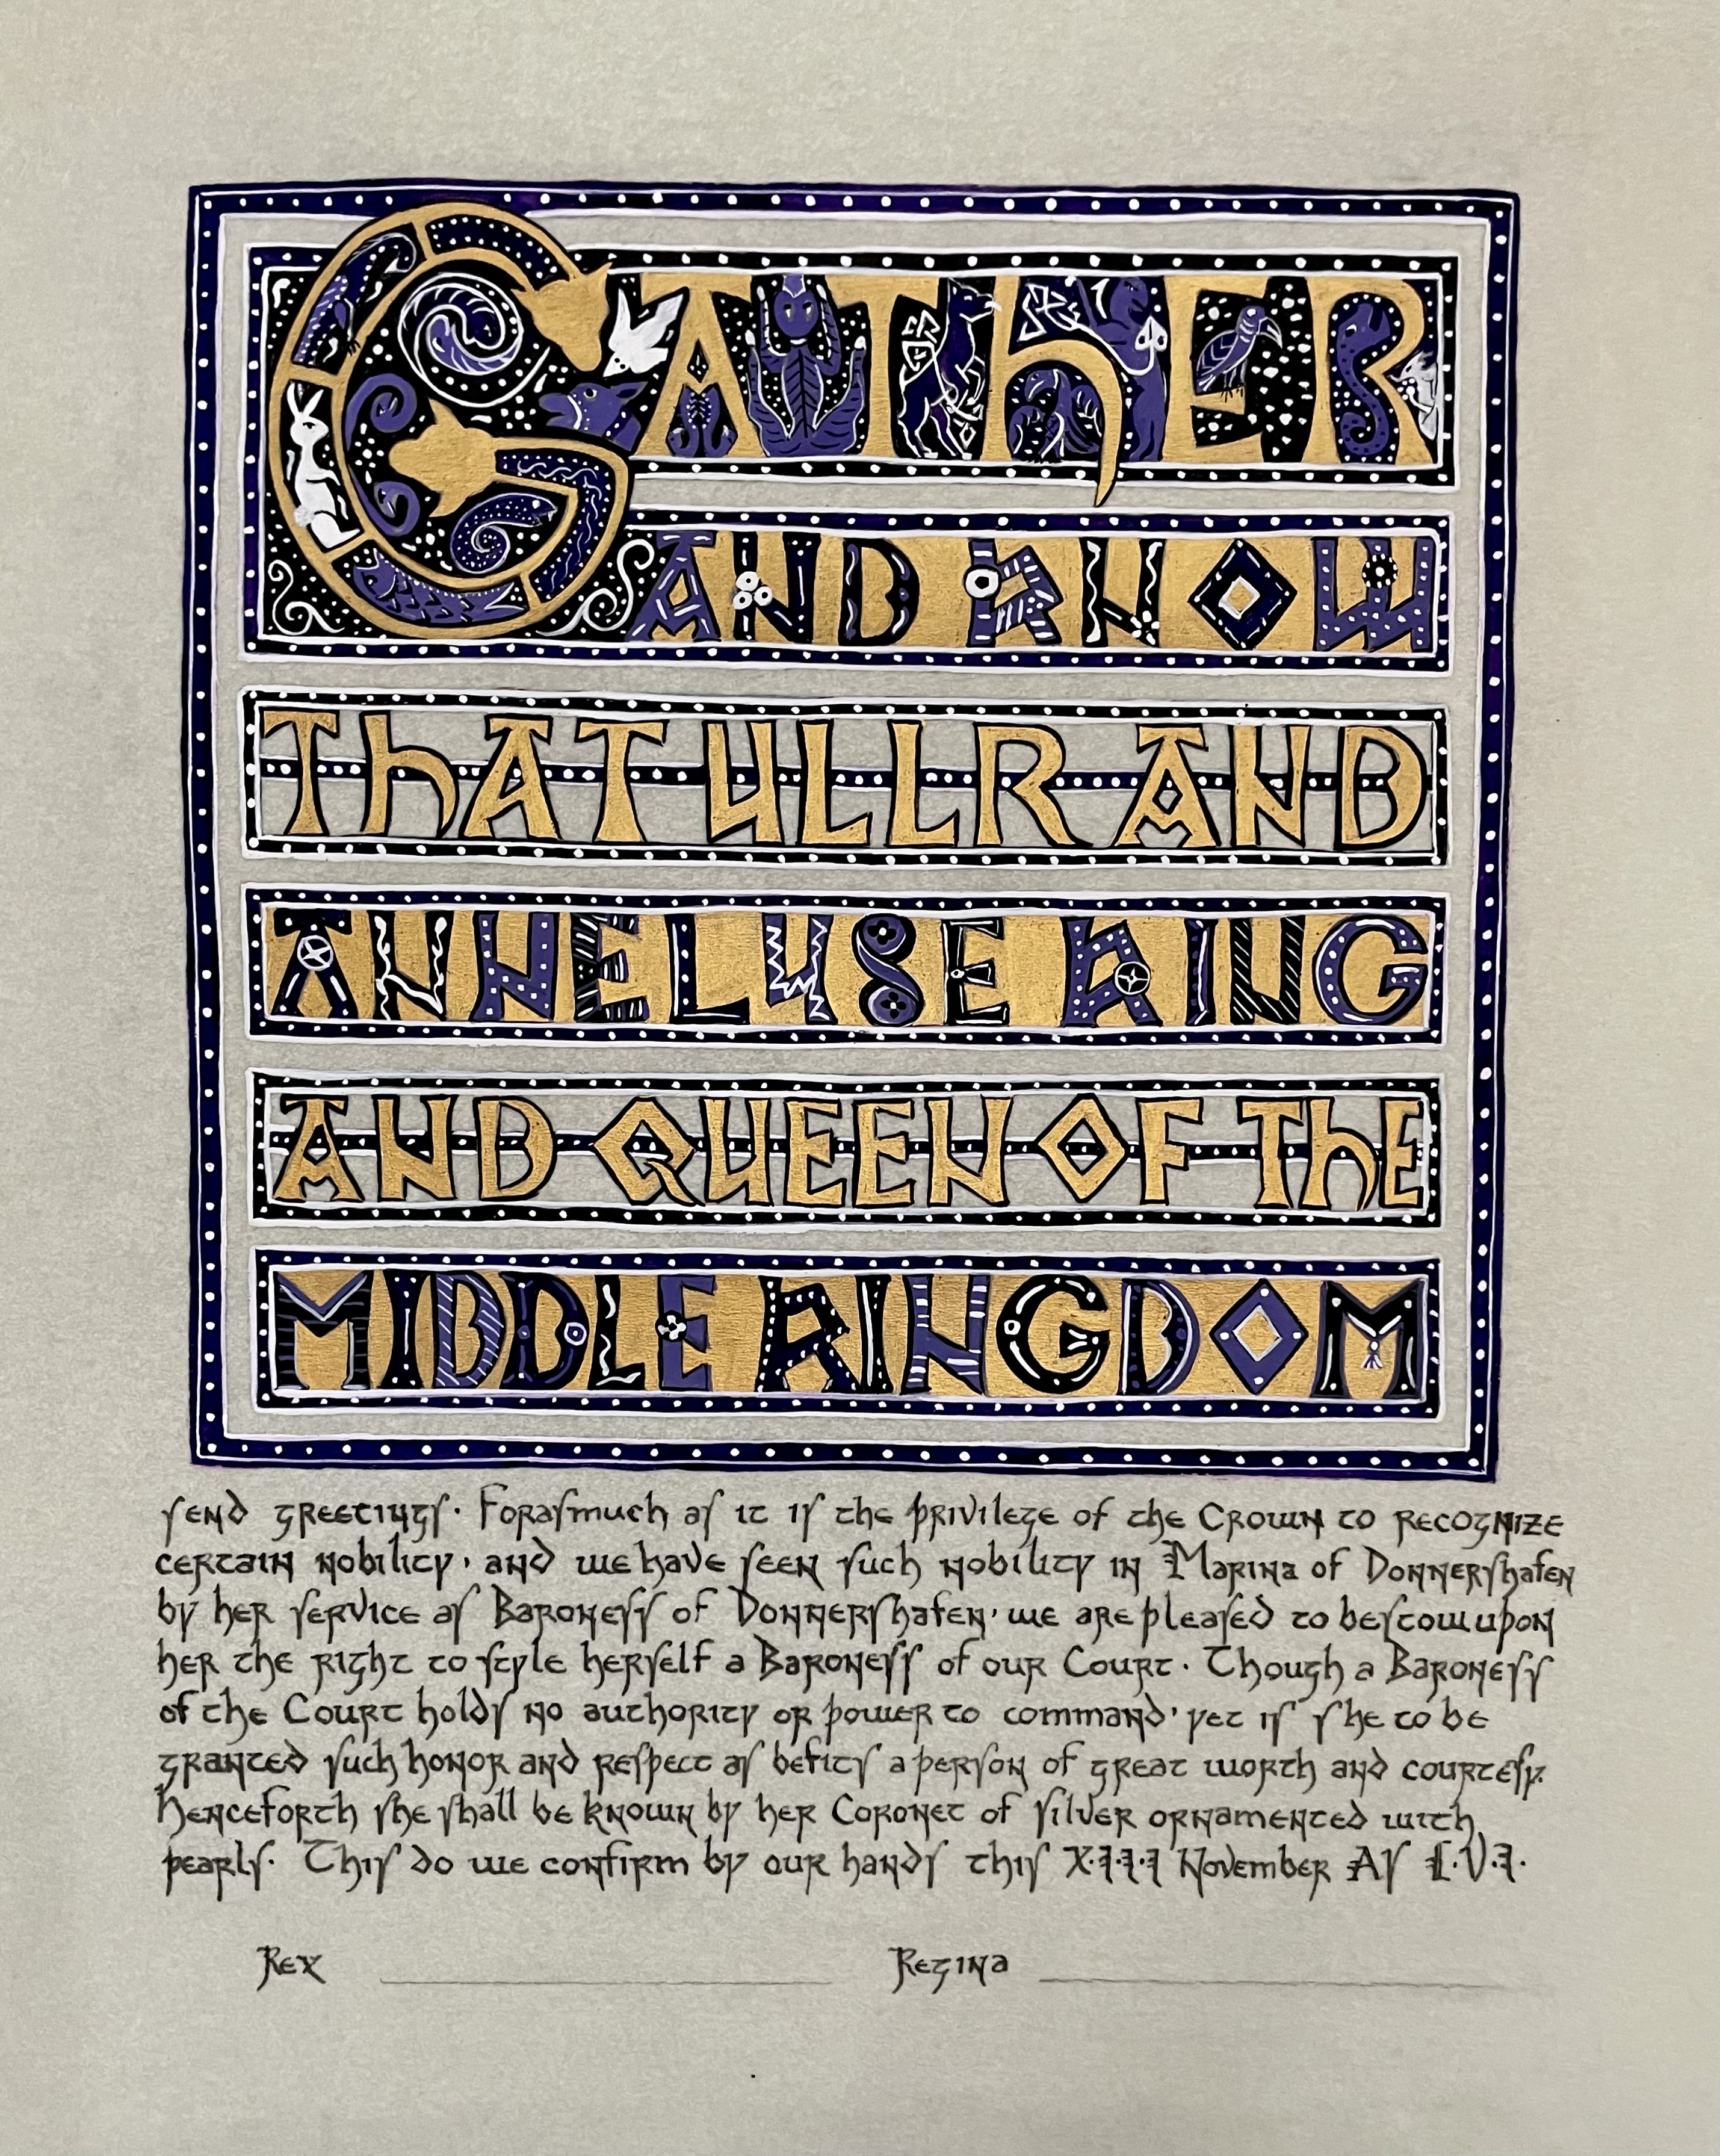 GATHER
AND KNOW
THAT ULLR AND
ANNELYSE KING
AND QUEEN OF THE
MIDDLE KINGDOM
send greetings. Forasmuch as it is the privilege of the Crown to recognize
certain nobility, and we have seen such nobility in Marina of Donnershafen
by her service as Baroness of Donnershafen, we are pleased to bestow upon
her the right to style herself a Baroness of our Court. Though a Baroness
of the Court holds no authority or power to command, yet is she to be
granted such honor and respect as befits a person of great worth and courtesy.
Henceforth she shall be known by her Coronet of silver ornamented with
pearls. This do we confirm by our hands this X.I.I.I November AS L.V.I.
Rex Regina